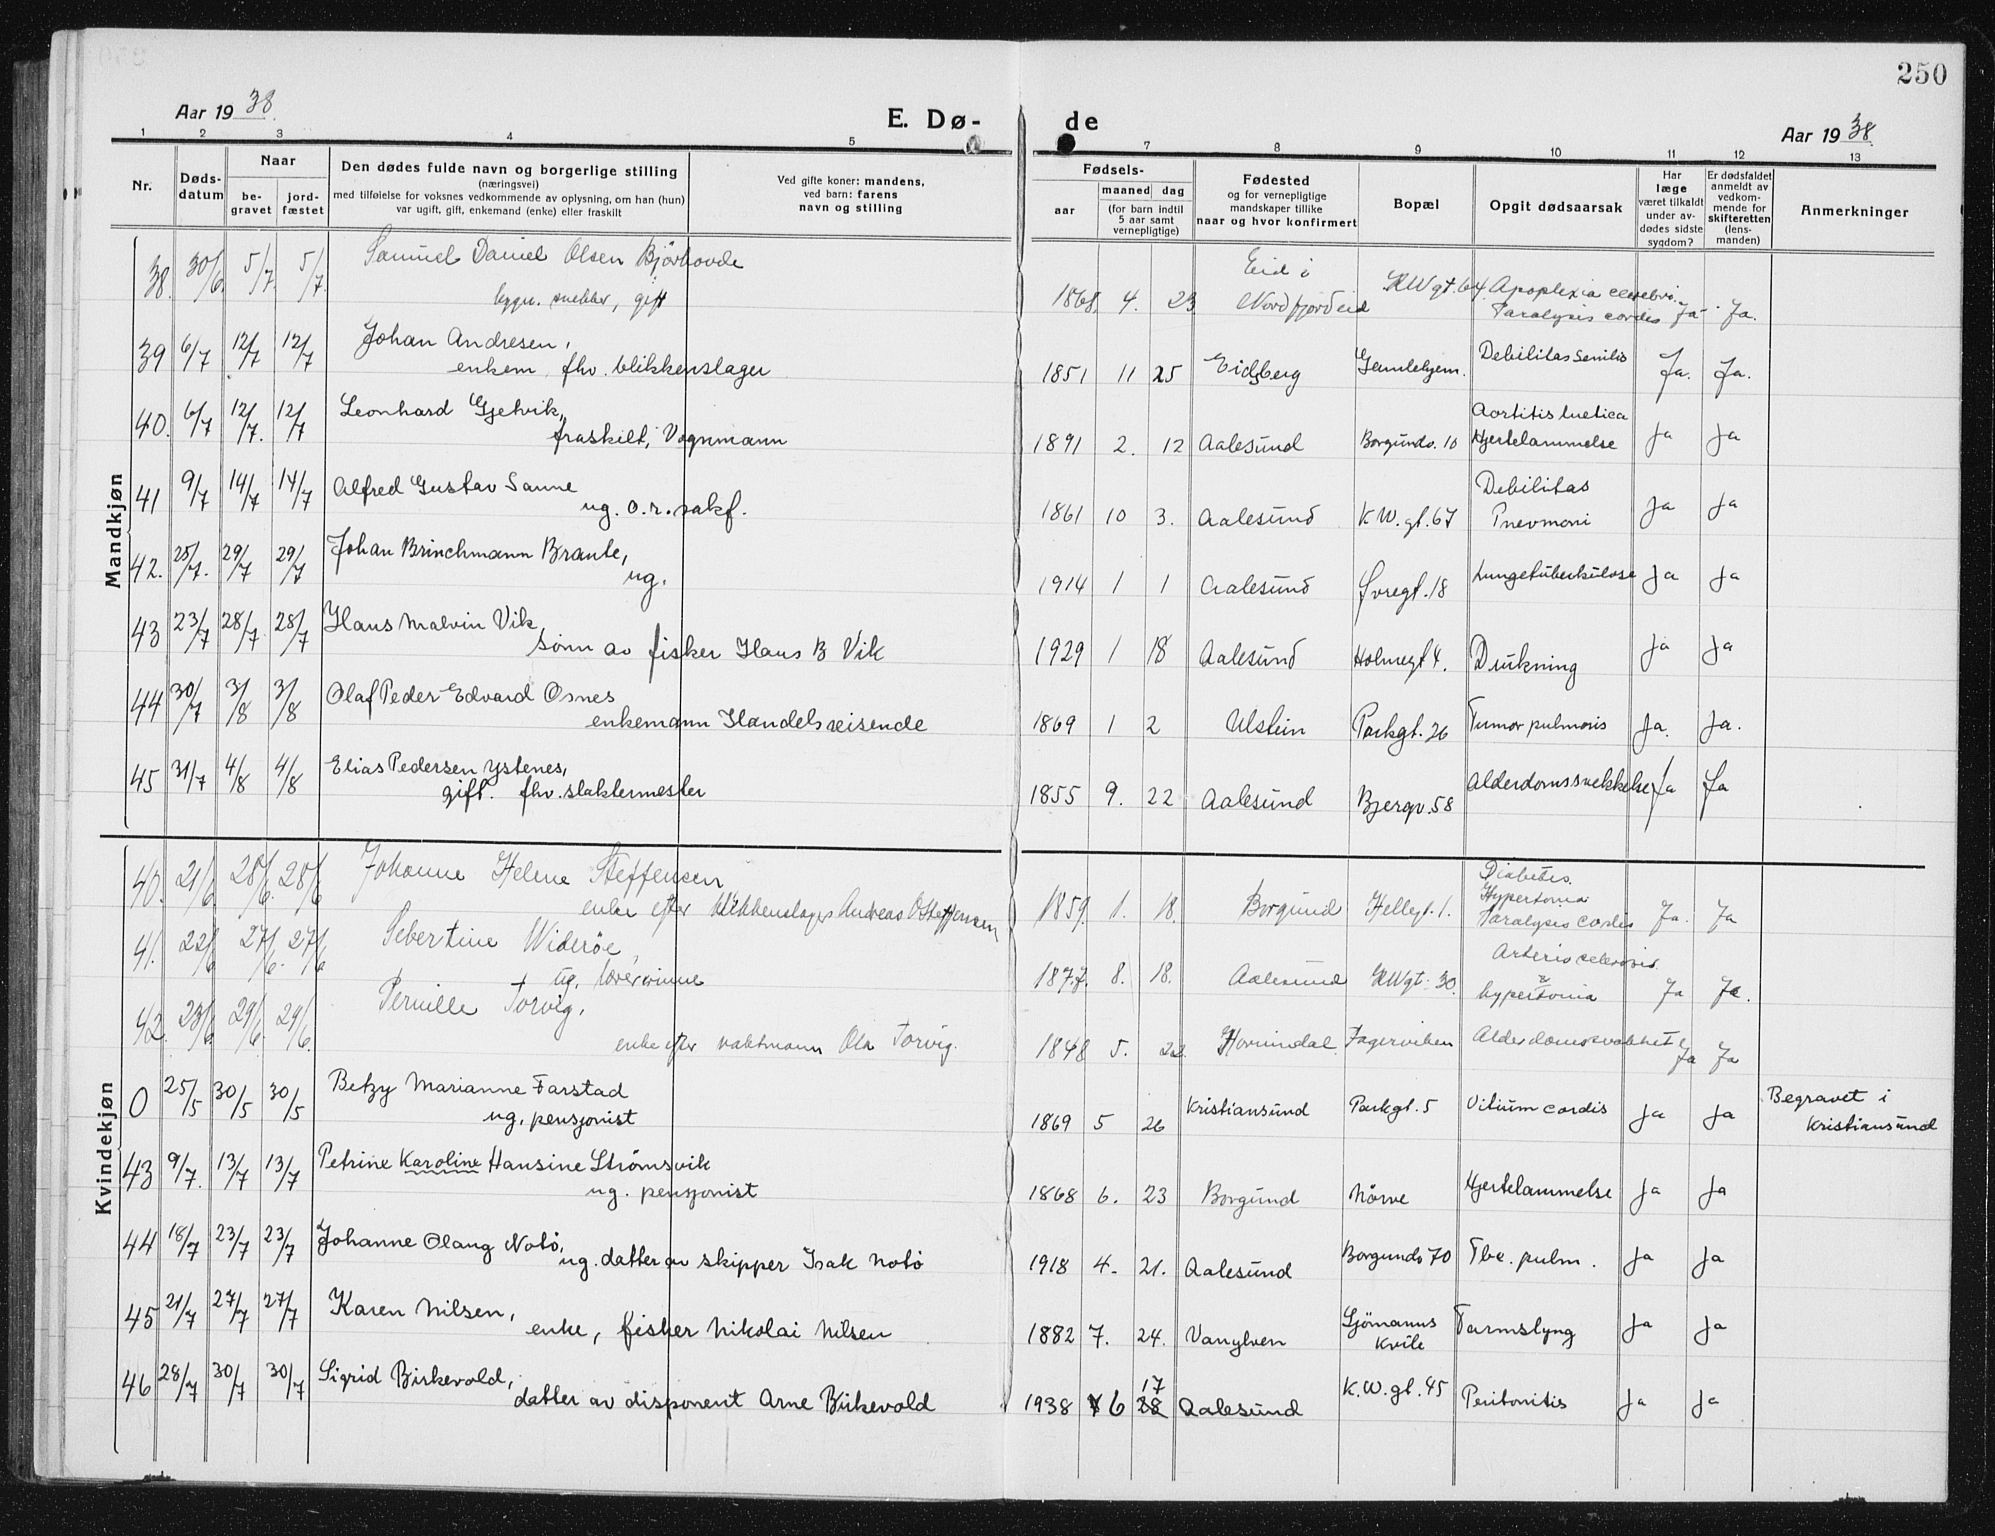 250
Aar 1938.
E. Dø-
de
Aar 1938.
1 2 3 4 5 7 8 9 10 11 12 13
Nr.
Døds-
datum
Naar
be-
gravet
jord-
fæstet
Den dødes fulde navn og borgerlige stilling
(næringsvei)
med tilføielse for voksnes vedkommende av oplysning, om han (hun)
var ugift, gift, enkemand (enke) eller fraskilt
Ved gifte koner: mandens,
ved barn: farens
navn og stilling
Fødsels-
aar
maaned dag
(for barn indtil
5 aar samt
vernepligtige)
Fødested
og for vernepligtige
mandskaper tillike
naar og hvor konfirmert
Bopæl
Opgit dødsaarsak
Har
læge
været tilkaldt
under av-
dødes sidste
sygdom?
Er dødsfaldet
anmeldt av
vedkom-
mende for
skifteretten
(lens-
manden)
Anmerkninger
Mandkjøn
38. 30/6 5/7. 5/7. Samuel Daniel Olsen Bjørhovde
bygn. snekker, gift
1868. 4. 23 Eid i
Nordfjordeid
KWgt.64. Apoplexia cerebri.
Paralysis cordis Ja. Ja.
39 6/7 12/7 12/7 Johan Andresen,
enkem. fhv. blikkenslager
1851 11 25 Eidsberg Gamlehjem. Debilitas senilis Ja. Ja.
40. 6/7 12/7. 12/7 Leonhard Gjelvik,
fraskilt, Vognmann
1891 2. 12 Aalesund Borgundv. 10 Aortitis luetica
Hjertelammelse Ja Ja
41 9/7 14/7 14/7 Alfred Gustav Sanne
ug. o.r.sakf.
1861 10 3. Aalesund K W. gt. 67 Debilitas
Pnevmoni Ja Ja
42. 25/7. 29/7 29/7 Johan Brinchmann Brante,
ug.
1914 1 1 Aalesund Øvregt. 18 Lungetuberkulose Ja Ja
43 23/7 28/7. 28/7 Hans Malvin Vik
sønn av fisker Hans B Vik
1929 1 18 Aalesund Holmegt 4. Drukning Ja Ja
44 30/7 3/8 3/8 Olaf Peder Edvard Osnes
enkemann Handelsreisende
1869 1 2 Ulstein Parkgt. 26 Tumor pulmonis Ja. Ja.
45 31/7 4/8 4/8 Elias Pedersen Ystenes,
gift. fhv. slaktermester
1855 9. 22 Aalesund Bjergv. 58 Alderdomssvekkelse Ja Ja
Kvindekjøn
40. 21/6 28/6. 28/6 Johanne Helene Steffensen
enke efter blikkenslager Andreas O Steffensen
1859. 1. 18. Borgund Hellegt. 1. Diabetes.
Hypertonia
Paralysis cordis Ja. Ja
41. 22/6 27/6. 27/6 Sebertine Widerøe,
ug. lærerinne
1877. 8. 18. Aalesund KWgt. 30. Arterio sclerosis
&
hypertonia Ja Ja.
42. 23/6 29/6. 29/6. Pernille Torvig,
enke efter vaktmann Ola Torvig.
1848 5. 22. Hornindal. Fagerviken Alderdomssvakhet Ja Ja
0 25/5 30/5 30/5 Betzy Marianne Farstad
ug. pensjonist
1869 5 26 Kristiansund Parkgt. 5 Vitium cordis Ja Ja Begravet i
Kristiansund
43 9/7. 13/7 13/7 Petrine Karoline Hansine Strømsvik
ug. pensjonist
1868 6. 23 Borgund Nørve Hjertelammelse Ja Ja
44 18/7 23/7 23/7 Johanne Olaug Notø,
ug. datter av skipper Isak Notø
1918 4. 21. Aalesund Borgundv 70 Tbc. pulm. Ja Ja
45 21/7 27/7 27/7 Karen Nilsen,
enke, fisker Nikolai Nilsen
1882 7. 24. Vanylven Sjømanns
kvile Tarmslyng Ja Ja
46 28/7 30/7 30/7 Sigrid Birkevold,
datter av disponent Arne Birkevold
1938 6 17
28 Aalesund K.W. gt. 45 Peritonitis Ja Ja